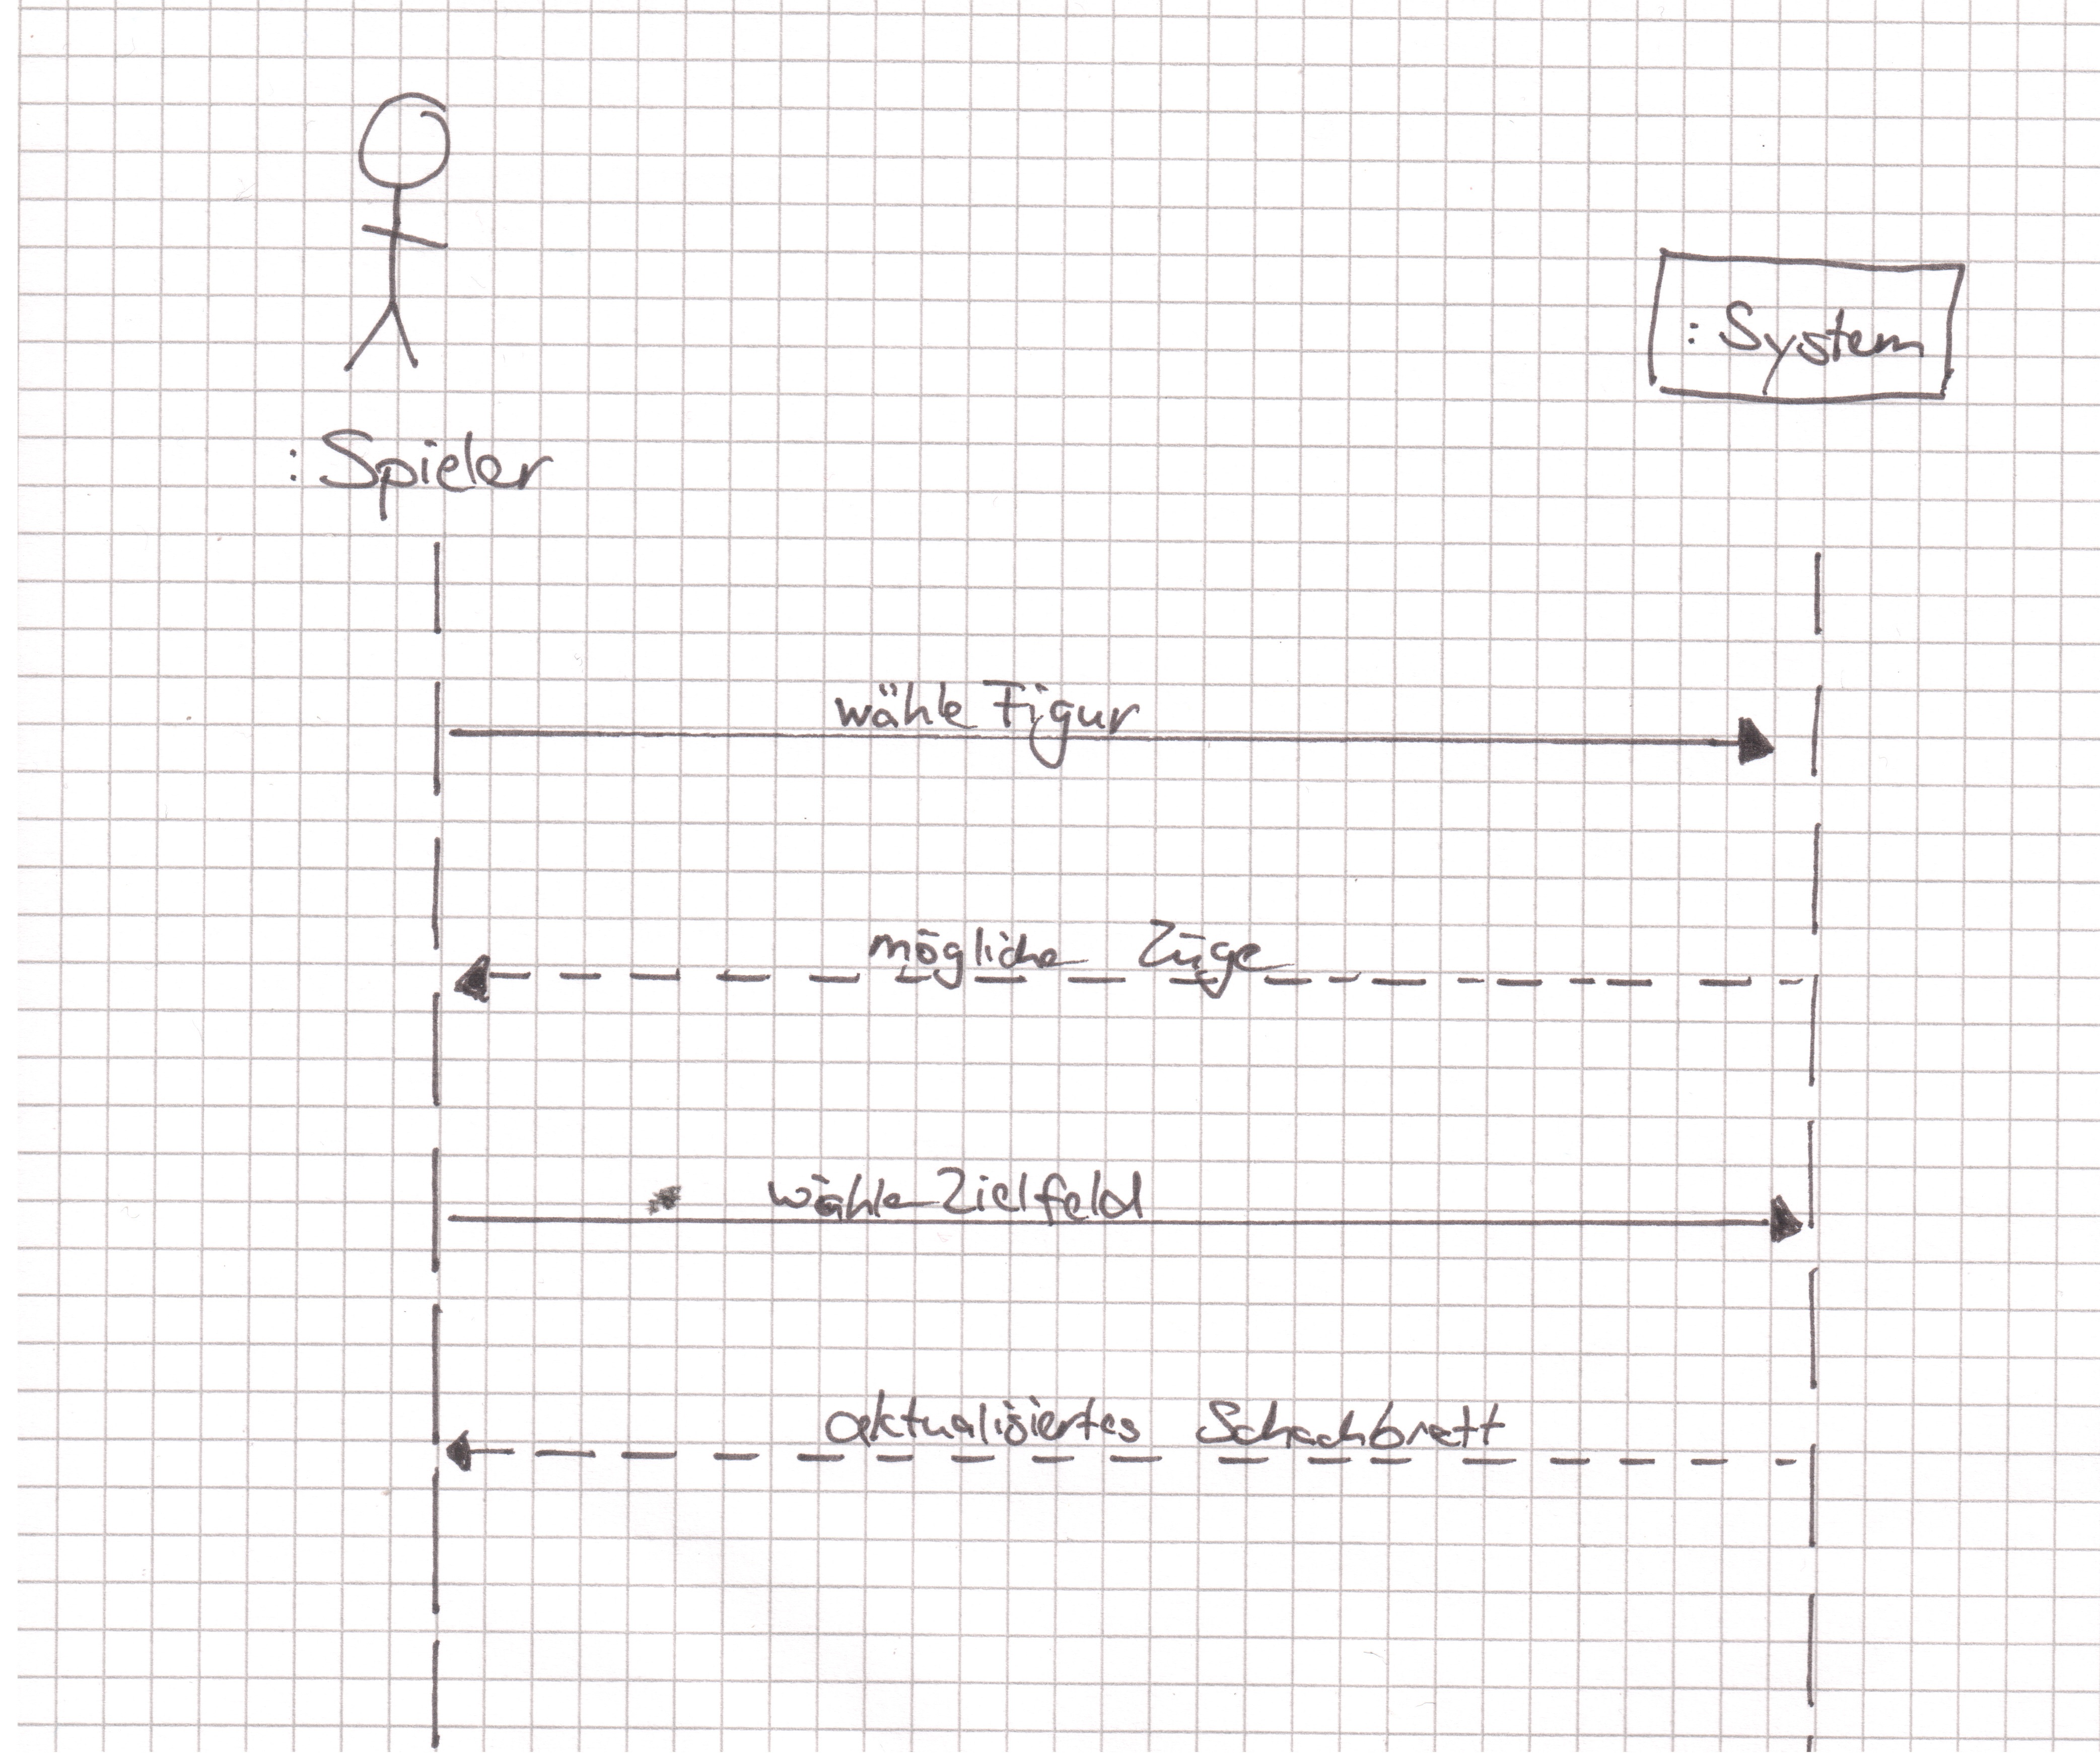 : System
: Spieler
wähle Figur
mögliche Züge
wähle Zielfeld
aktualisiertes Schachbrett